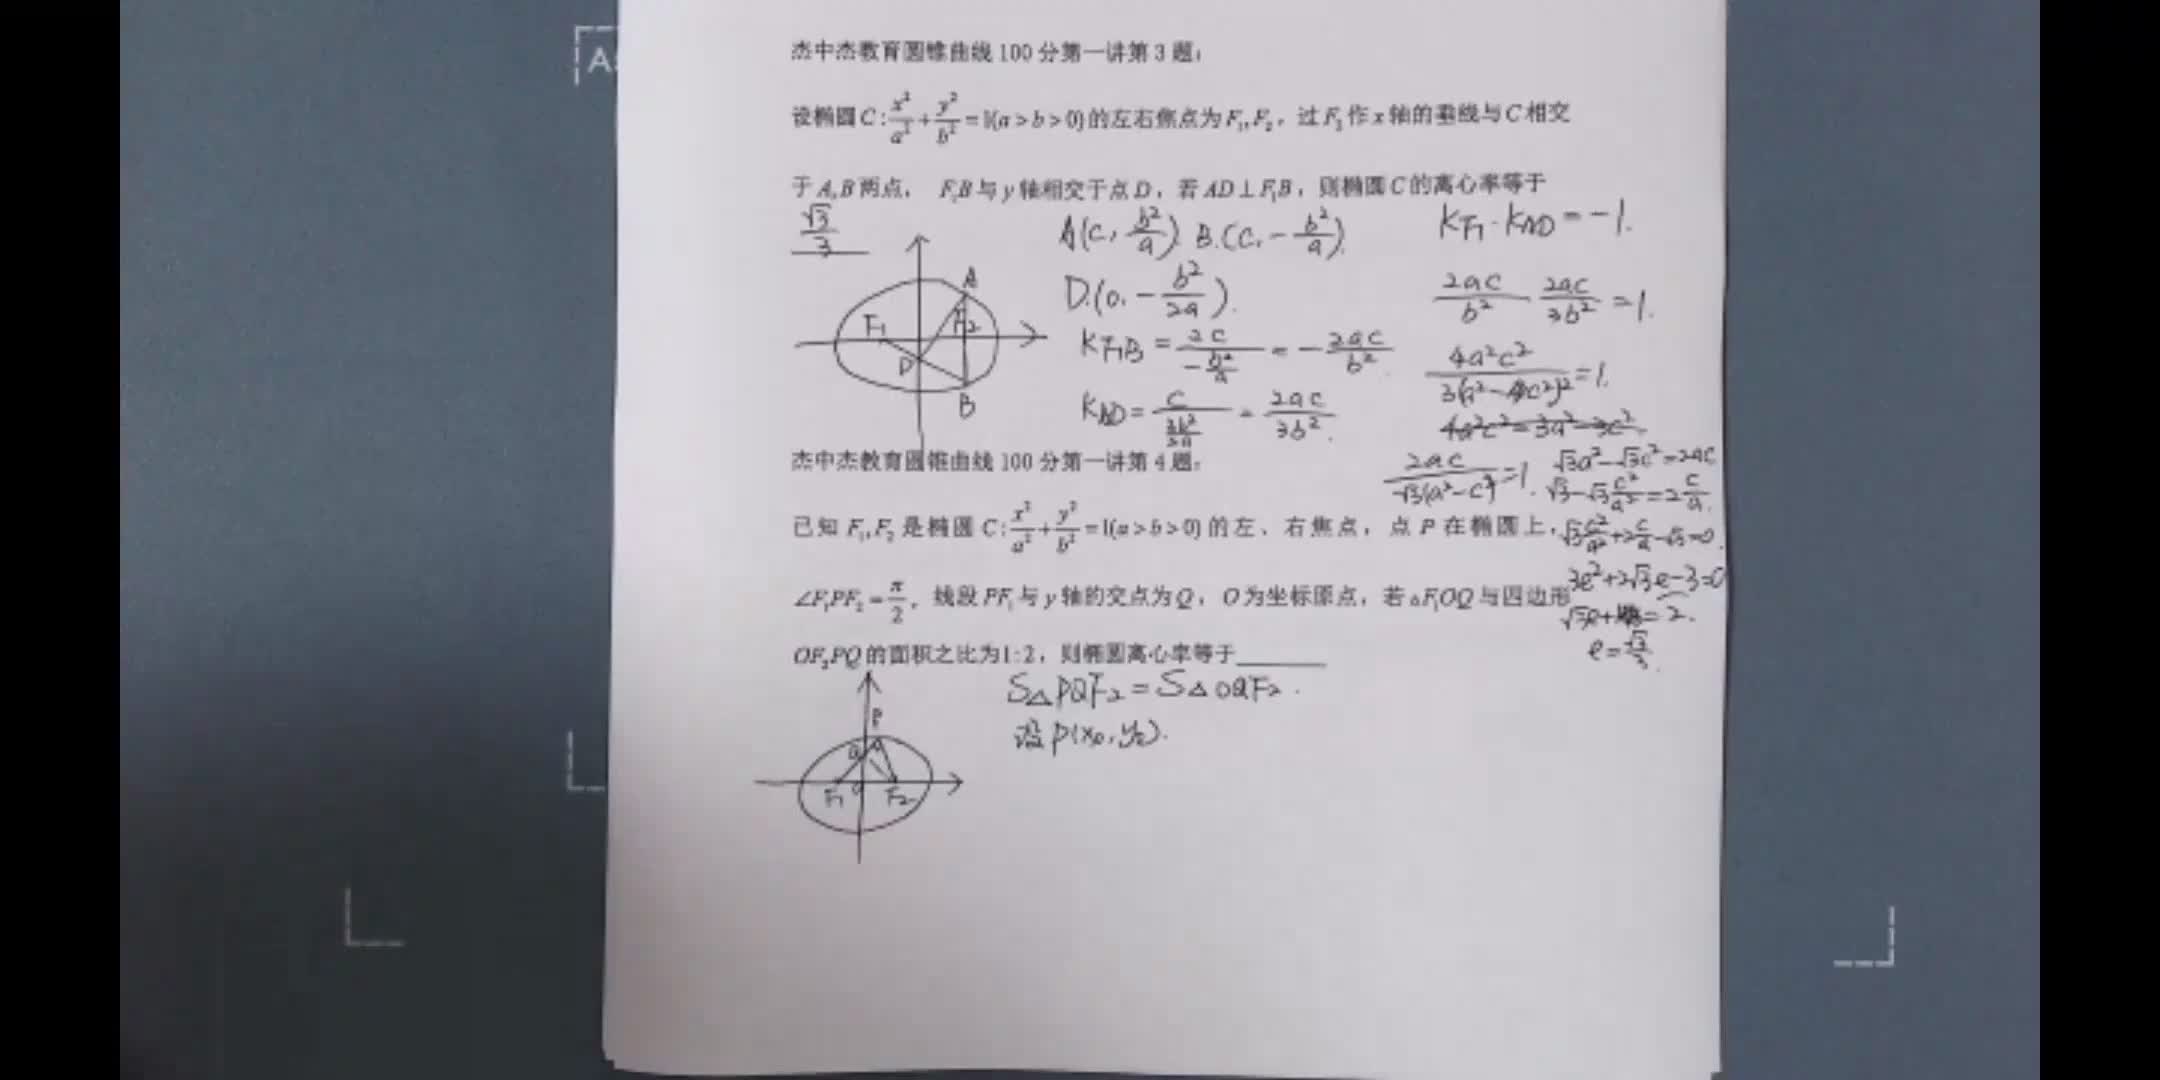 A
杰中杰教育圆锥曲线100分第一讲第3题:
设椭圆C:x²/a²+y²/b²=1(a>b>0)的左右焦点为F₁,F₂，过F₂作x轴的垂线与C相交
于A,B两点， F₁B与y轴相交于点D，若AD⊥F₁B，则椭圆C的离心率等于
√3/3
A(c, b²/a) B.(c, -b²/a).
D.(0, -b²/2a).
KF₁B = 2c/(-b²/a) = -2ac/b²
KAD = c/(3b²/2a) = 2ac/3b².
KF₁·KAD=-1.
2ac/b² 2ac/3b² =1.
4a²c²/3(a²-c²)²=1.
4a²c²=3a²-3c²
2ac/√3(a²-c²)=1.
√3a²-√3c²=2ac
√3-√3c²/a²=2c/a.
√3c²/a²+2c/a-√3=0.
3e²+2√3e-3=0
√3e+ =2.
e=√3/3.
A
F₁
F₂
D
B
杰中杰教育圆锥曲线100分第一讲第4题:
已知F₁,F₂是椭圆C:x²/a²+y²/b²=1(a>b>0)的左、右焦点，点P在椭圆上,
∠F₁PF₂=π/2，线段PF₁与y轴的交点为Q，O为坐标原点，若△F₁OQ与四边形
OF₂PQ的面积之比为1:2，则椭圆离心率等于
S△PQF₂=S△OQF₂.
设P(x₀,y₀).
P
Q
F₁
O
F₂